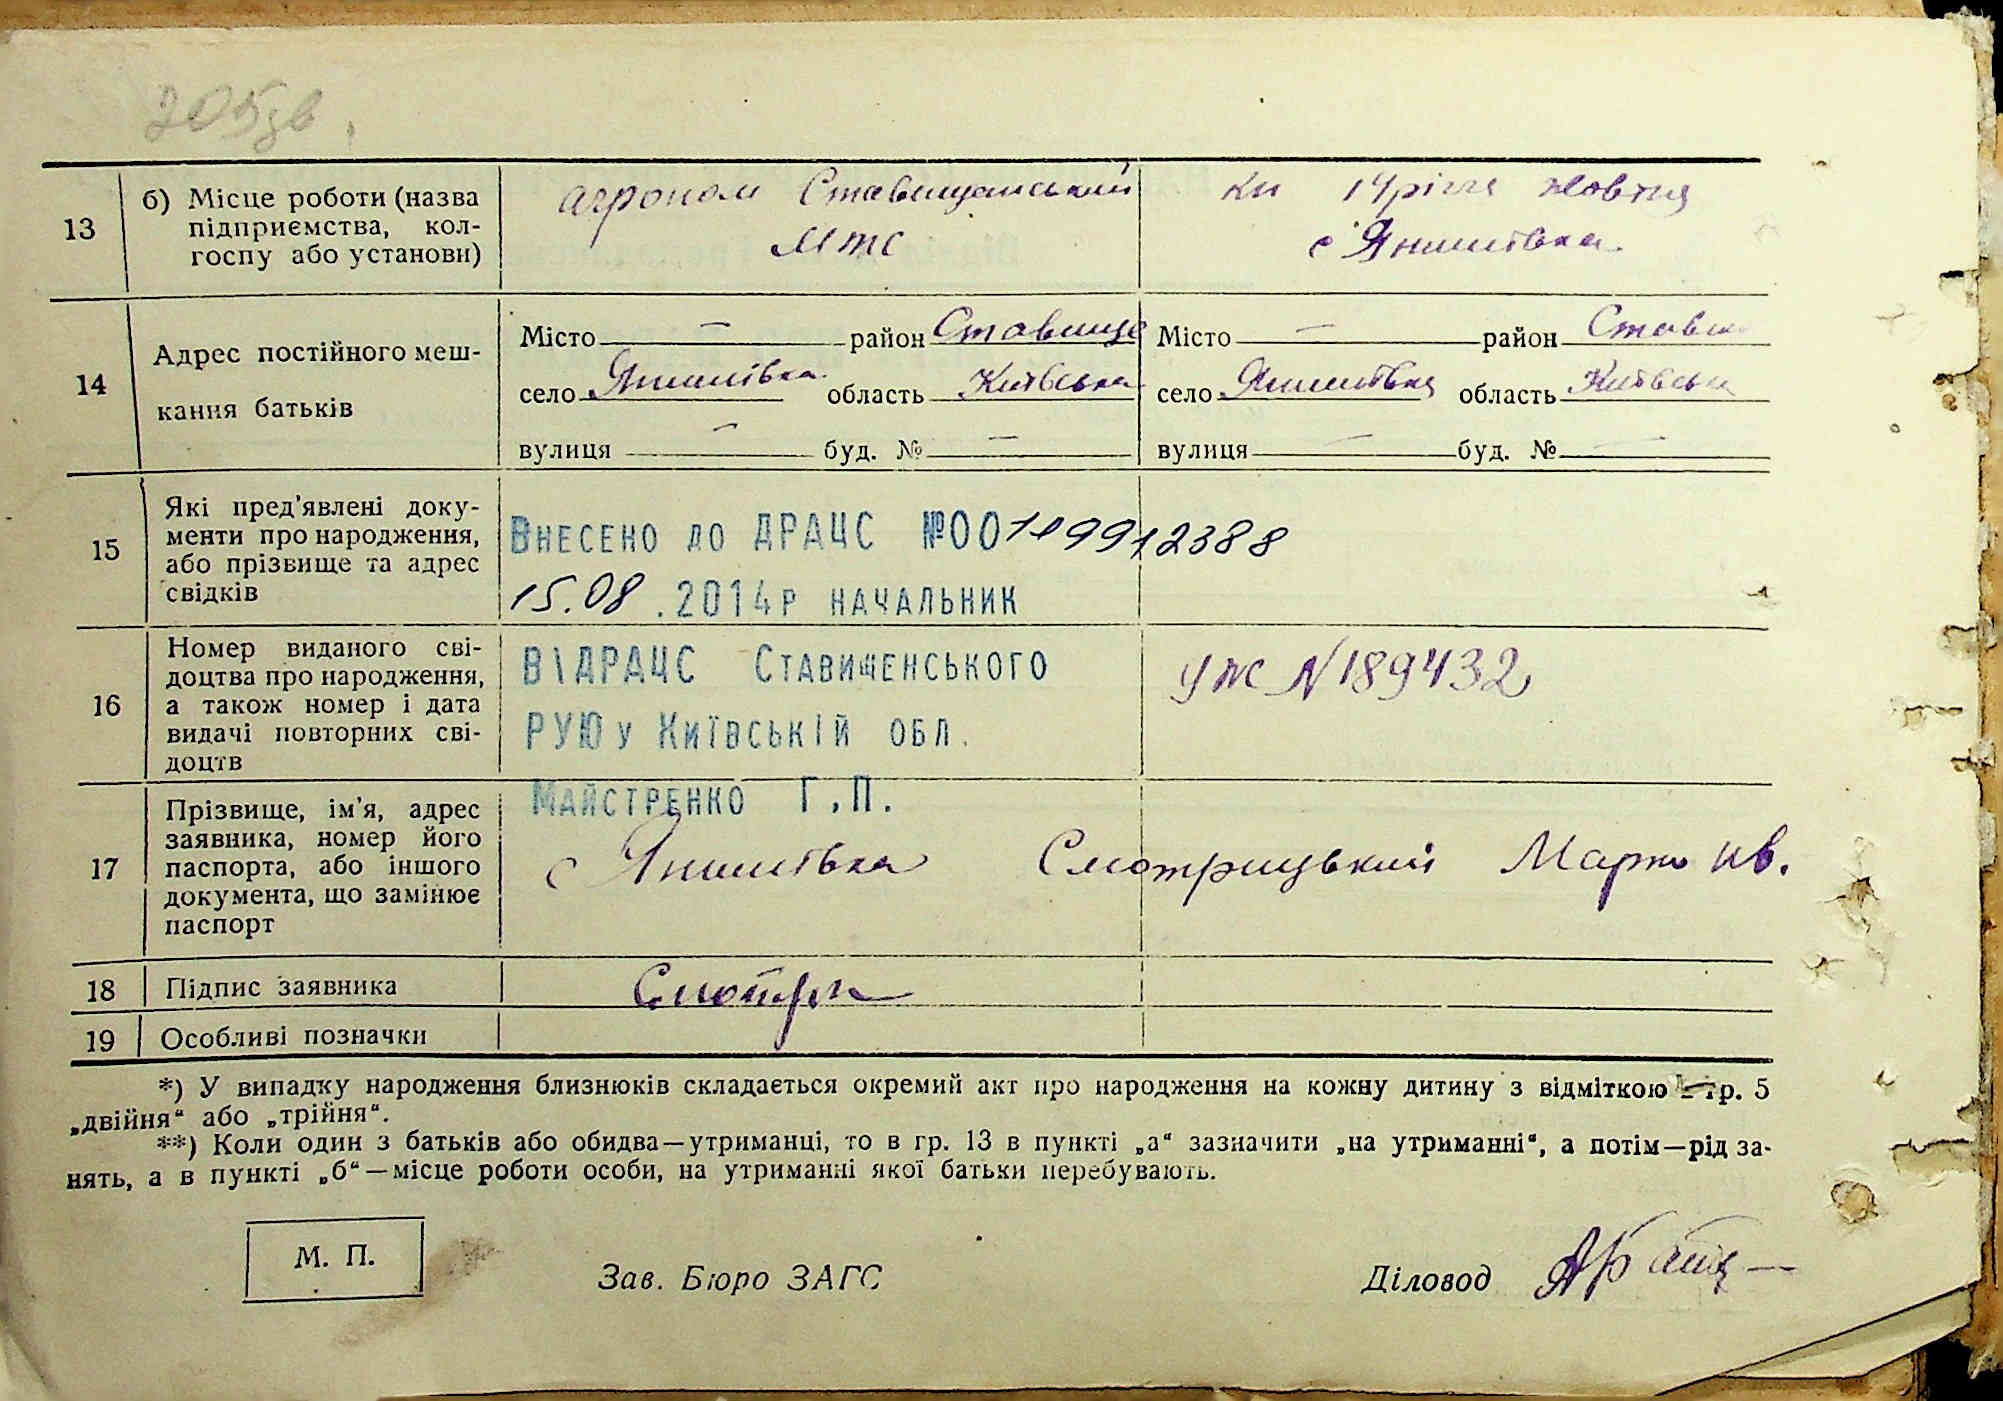 205зв
13
б) Місце роботи (назва
підприємства, кол-
госпу або установи)
агроном Ставищанський
МТС
14 річчя жовтня
с Янишівка
14
Адрес постійного меш-
кання батьків
Місто — район Ставище
село Янишівка область Київська
вулиця — буд. № —
Місто — район Стави
село Янишівка область Київська
вулиця — буд. № —
15
Які пред'явлені доку-
менти про народження,
або прізвище та адрес
свідків
Внесено до ДРАЦС №00119912388
15.08.2014р начальник
16
Номер виданого сві-
доцтва про народження,
а також номер і дата
видачі повторних сві-
доцтв
ВІДРАЦС Ставищенського
РУЮ у Київській обл.
Майстренко Г.П.
УЖ N 189432
17
Прізвище, ім'я, адрес
заявника, номер його
паспорта, або іншого
документа, що замінює
паспорт
с Янишівка Смотрицький Марко Ив.
18
Підпис заявника
Смотри
19
Особливі позначки
*) У випадку народження близнюків складається окремий акт про народження на кожну дитину з відміткою гр. 5
„двійня“ або „трійня“.
**) Коли один з батьків або обидва—утриманці, то в гр. 13 в пункті „а“ зазначити „на утриманні“, а потім—рід за-
нять, а в пункті „б“—місце роботи особи, на утриманні якої батьки перебувають.
М. П.
Зав. Бюро ЗАГС
Діловод